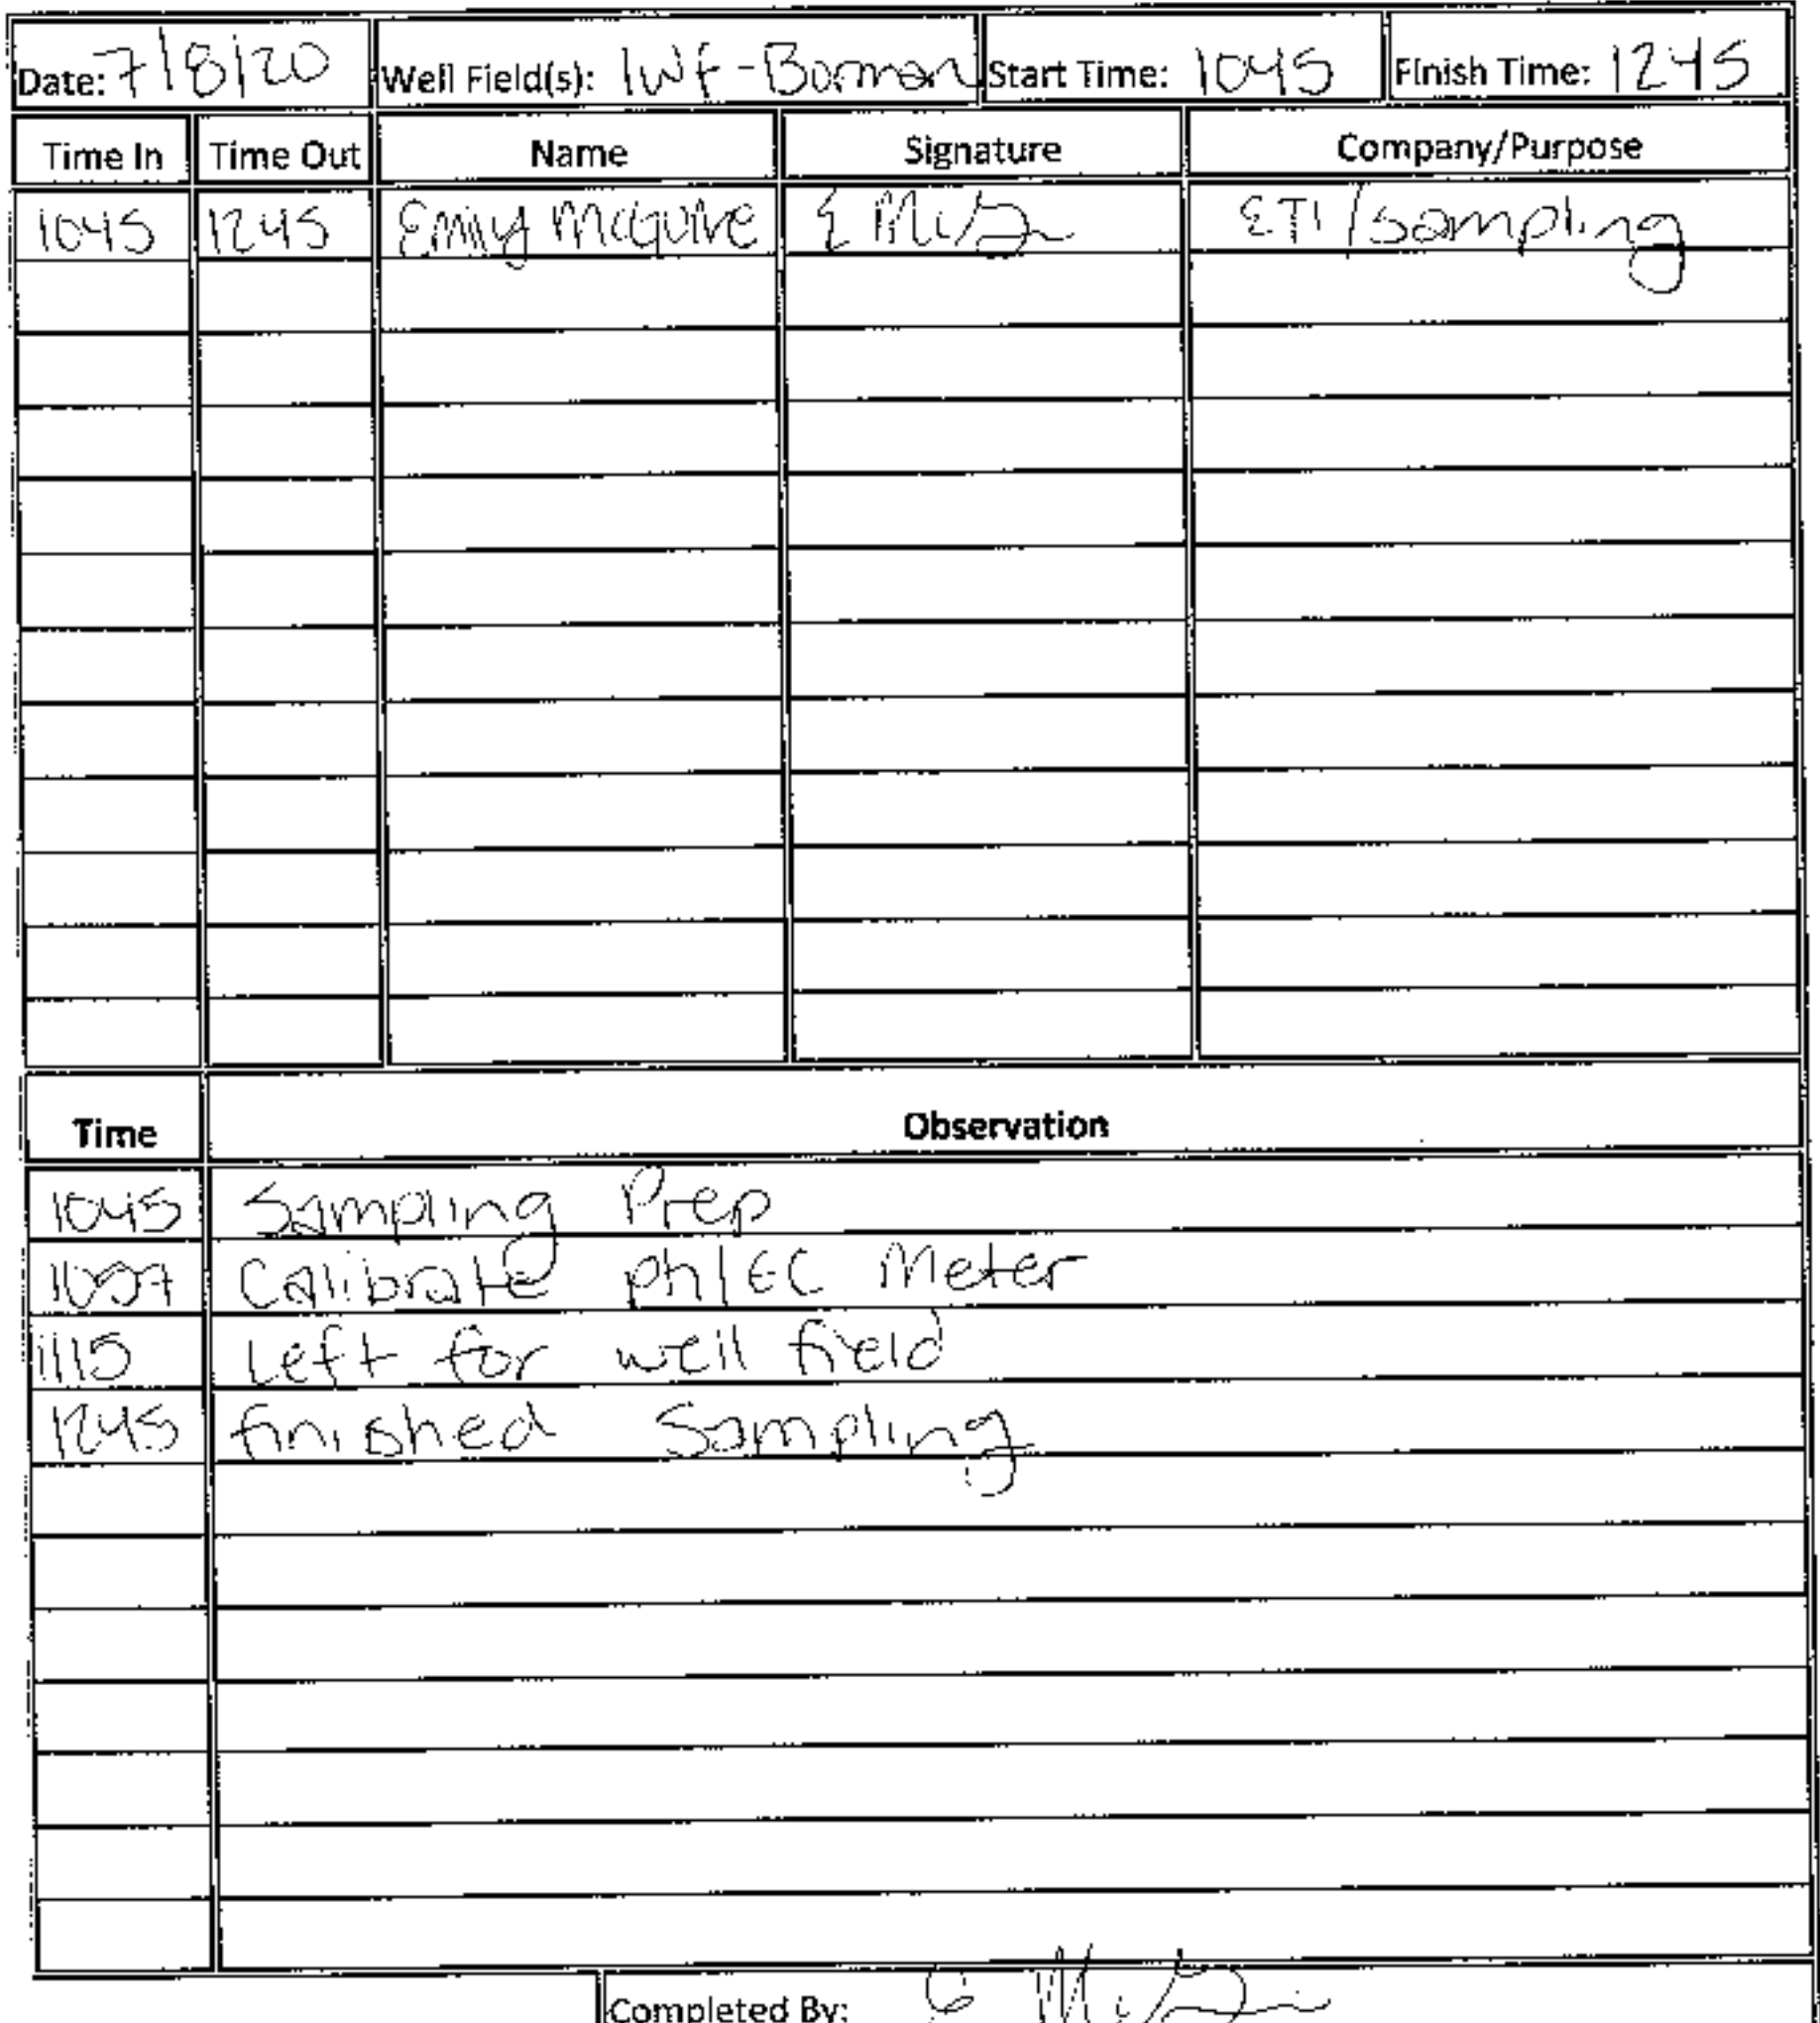 Date: 7/8/20 Well Field(s): IWF-Borman Start Time: 1045 Finish Time: 1245
Time In Time Out Name Signature Company/Purpose
1045 1245 Emily McGuire ETI/Sampling
Time Observation
1045 Sampling Prep
Calibrate ph/EC Meter
1115 Left for well field
1245 finished Sampling
Completed By: